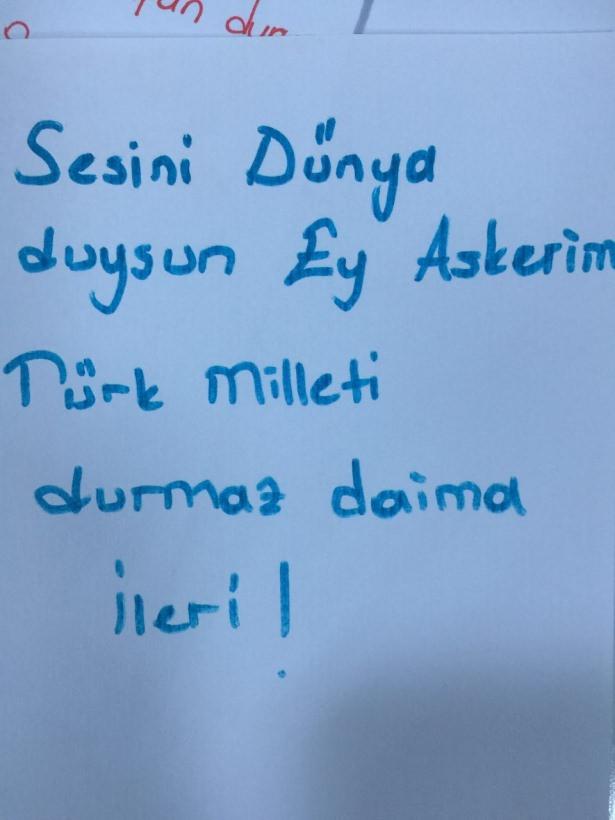 Sesini Dünya
duysun Ey Askerim
Türk Milleti
durmaz daima
ileri!